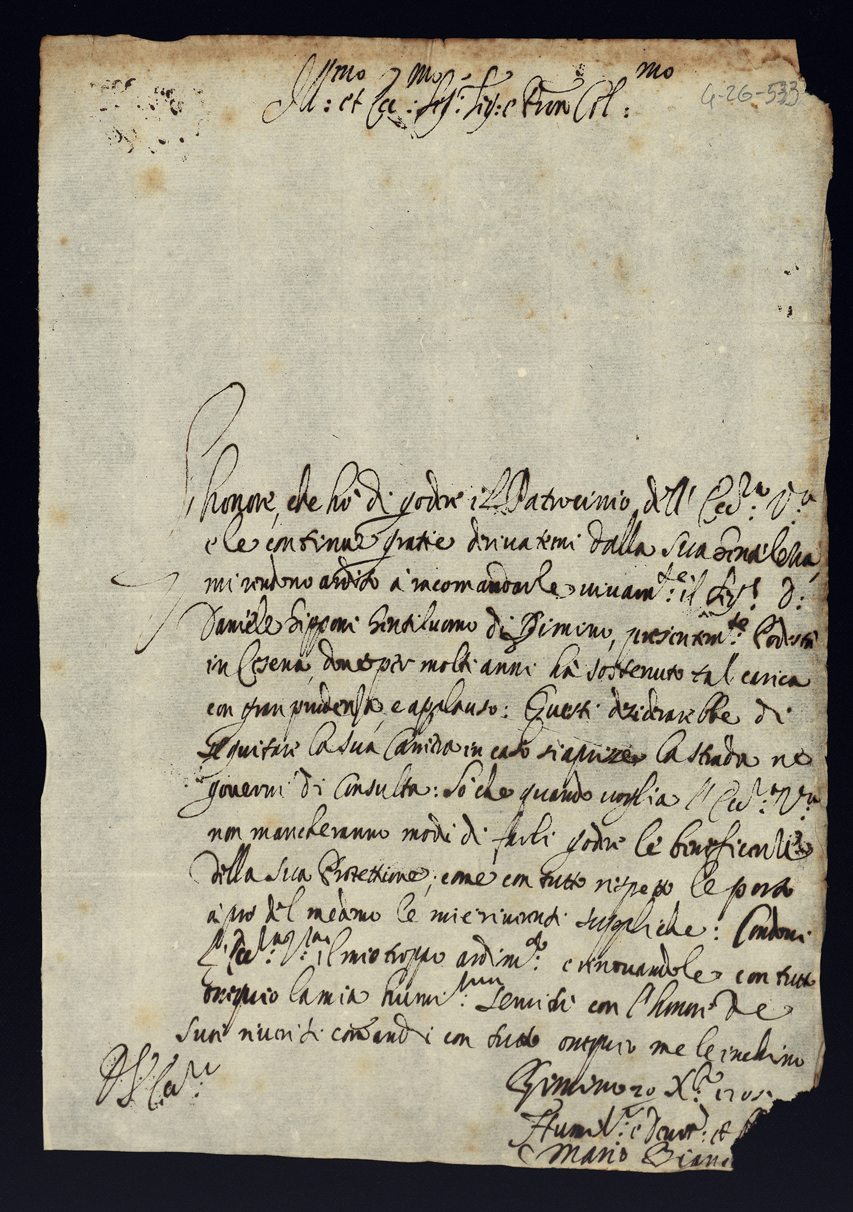 Ill:mo et Ecc:mo Sig:r Sig:e e Pron Col:mo
4-26-533
L'honore, che hò di godre il Patrocinio dell' Ecc:za V:ra
e le continue gratie derivatemi dalla sua
mi rendono ardito à incomandarle vivam:te il Sig:r D:
Daniele Zipponi Gentiluomo di Rimino, presentem:te Podestà
in Cesena, dove per molti anni hà sostenuto tal carica
con gran prudenza, e applauso: Questi desiderarebbe di
seguitare la sua Cariera in caso si aprisse la strada ne
governi di Consulta: Sò che quando voglia l'Ecc:za V:ra
non mancheranno modi di farli godre le beneficenze
della sua Protettione; come con tutto rispetto le porto
à prò del medmo le mie riverenti suppliche: Condoni
l'Ecc:za V:ra il mio troppo ardim:to e rinovandole con tutto
ossequio la mia humil:ma servitù con l'honore de
suoi riveriti comandi con tutto ossequio me le inchino
D. V. Ecc:za
Rimino 20 X:bre 170
Humil:mo e Devot: et
Mario Bian